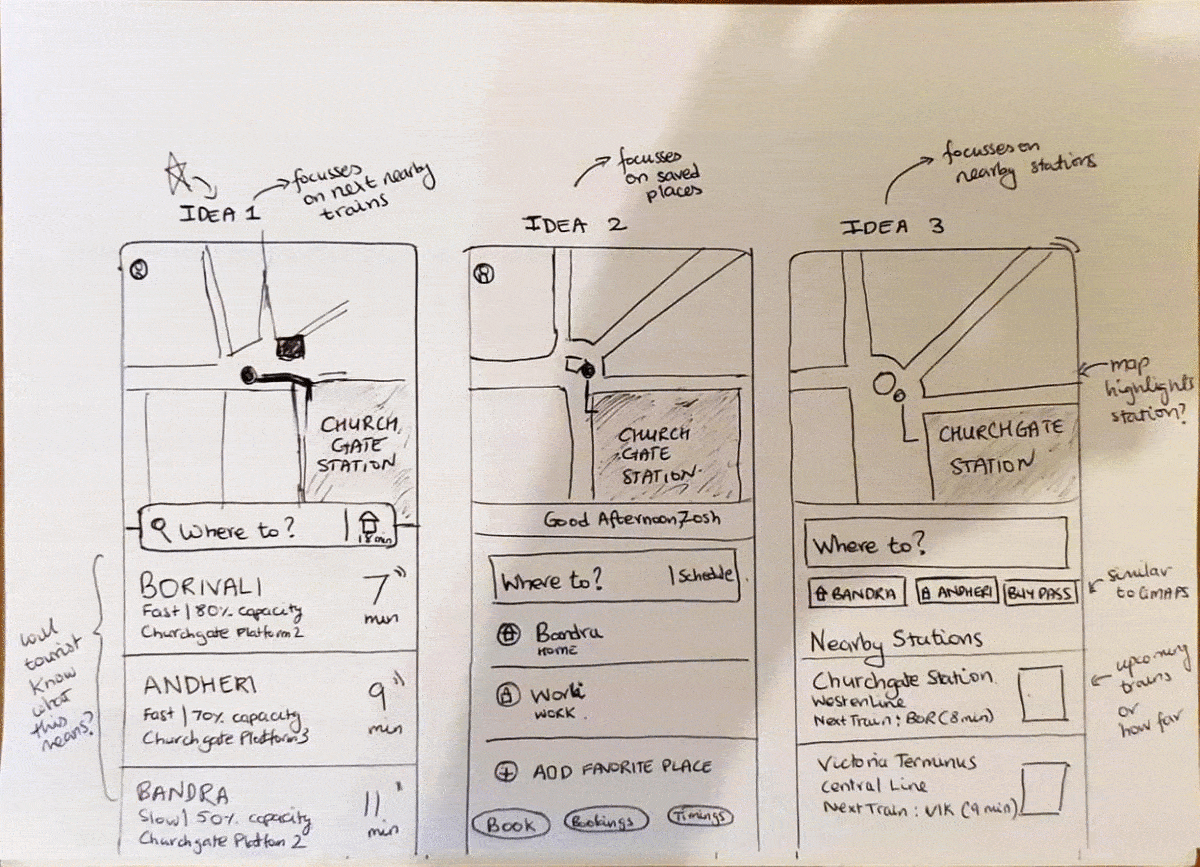 IDEA 1
focusses
on next nearby
trains
CHURCH
GATE
STATION
Where to?
18 min
BORIVALI
7 min
Fast | 80% capacity
Churchgate Platform 2
ANDHERI
9 min
Fast | 70% capacity
Churchgate Platform 3
BANDRA
11 min
Slow | 50% capacity
Churchgate Platform 2
will
tourist
know
what
this
means?
IDEA 2
focusses
on saved
places
CHURCH
GATE
STATION
Good Afternoon Zosh
Where to? | Schedule
Bandra
HOME
Worli
WORK
ADD FAVORITE PLACE
Book
Bookings
Timings
IDEA 3
focusses on
nearby stations
CHURCHGATE
STATION
map
highlights
station?
Where to?
BANDRA
ANDHERI
BUY PASS
similar
to GMAPS
Nearby Stations
Churchgate Station
Western Line
Next Train: BOR (8 min)
upcoming
trains
or
how far
Victoria Terminus
Central Line
Next Train: (9 min)